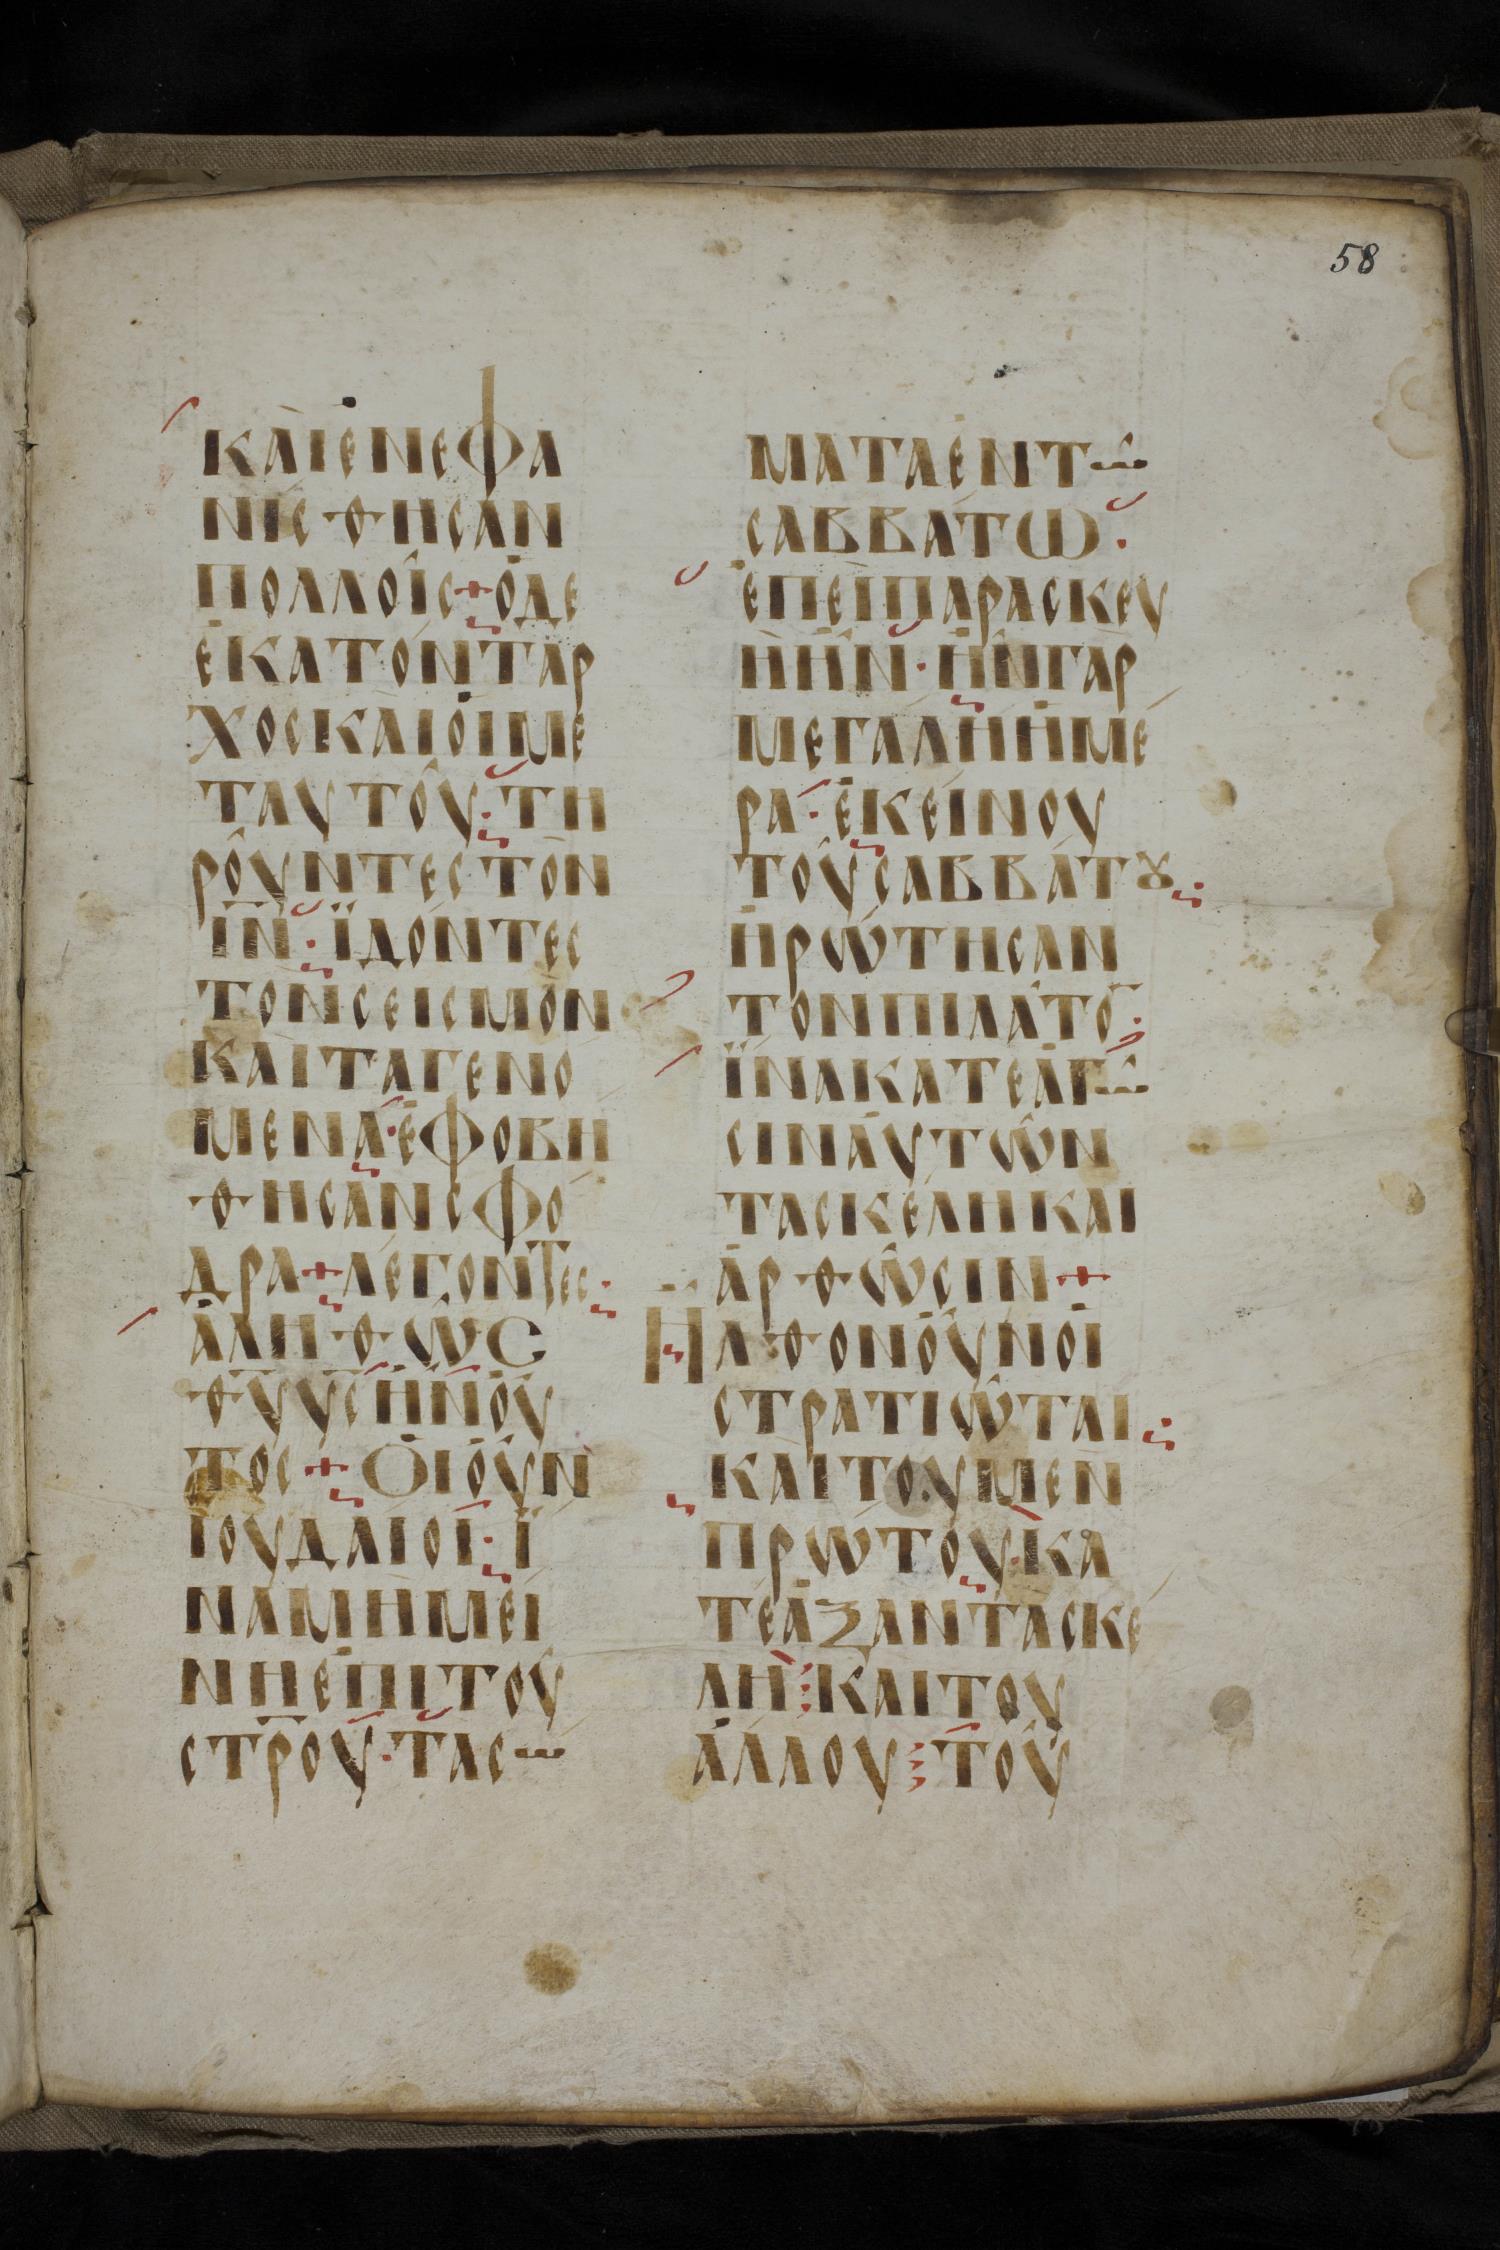 58
ΚΑῚΕΝΕΦΑ
ΝΊΣΘΗΣΑΝ
ΠΟΛΛΟῖΣ+ὉΔΕ
ἙΚΑΤΌΝΤΑΡ
ΧΟΣΚΑΙΟἹΜΕ
ΤΑΥΤΟῦ·ΤΗ
ΡΟῦΝΤΕΣΤΟΝ
ΙΝ·ΪΔΌΝΤΕΣ
ΤΟΝΣΕΙΣΜΟΝ
ΚΑΙΤΑΓΕΝΌ
ΜΕΝΑ·ἘΦΟΒΗ
ΘΗΣΑΝΣΦΌ
ΔΡΑ+ΛΈΓΟΝΤΕΣ·
ἈΛΗΘῶΣ
ΘΥΥΣἮΝΟὟ
ΤΟΣ+ΟἹΟὖΝ
ΙΟΥΔΑΙΟΙ·Ϊ
ΝΑΜῊΜΕΊ
ΝΗἘΠῚΤΟῦ
ΣΤΡΟῦ·ΤΑΣΩ
ΜΑΤΑἘΝΤῶ
ΣΑΒΒΆΤΩ·
ἘΠΕῚΠΑΡΑΣΚΕΥ
Ὴἦ̈Ν·ἮΝΓᾺΡ
ΜΕΓΆΛΗἩΜΈ
ΡΑ·ἘΚΕΊΝΟΥ
ΤΟῦΣΑΒΒΆΤȢ·
ἨΡΏΤΗΣΑΝ
ΤΟΝΠΙΛΆΤΟ̅·
ΪΝΑΚΑΤΕΑΓῶ
ΣΙΝΑΥΤῶΝ
ΤΑΣΚΈΛΗΚΑΙ
ἈΡΘῶΣΙΝ+
ἮΛΘΟΝΟὖΝΟἹ
ΣΤΡΑΤΙῶΤΑΙ·
ΚΑῚΤΟΥΜΕΝ
ΠΡΏΤΟΥ·ΚΑ
ΤΈΑΞΑΝΤᾺΣΚΈ
ΛΗ⁝ΚΑῚΤΟΥ
ἌΛΛΟΥ⁝ΤΟῦ